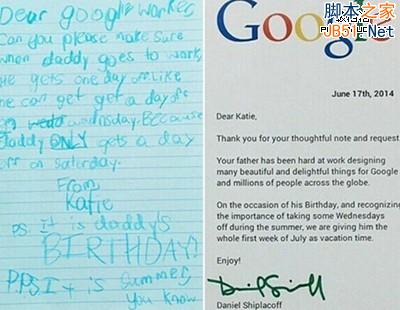 Dear google worker
Can you please make sure
when daddy goes to work,
he gets one day off. Like
he can get get a day off
on wedo wednsday. Because
daddy ONLY gets a day
off on saturday.
From,
Katie
P.S. It is daddy's
BIRTHDAY!
P.P.S It is summer,
you know
脚本之家
JB51.Net
Google
June 17th, 2014
Dear Katie,
Thank you for your thoughtful note and request
Your father has been hard at work designing
many beautiful and delightful things for Google
and millions of people across the globe.
On the occasion of his Birthday, and recognizing
the importance of taking some Wednesdays
off during the summer, we are giving him the
whole first week of July as vacation time.
Enjoy!
Daniel Shiplacoff